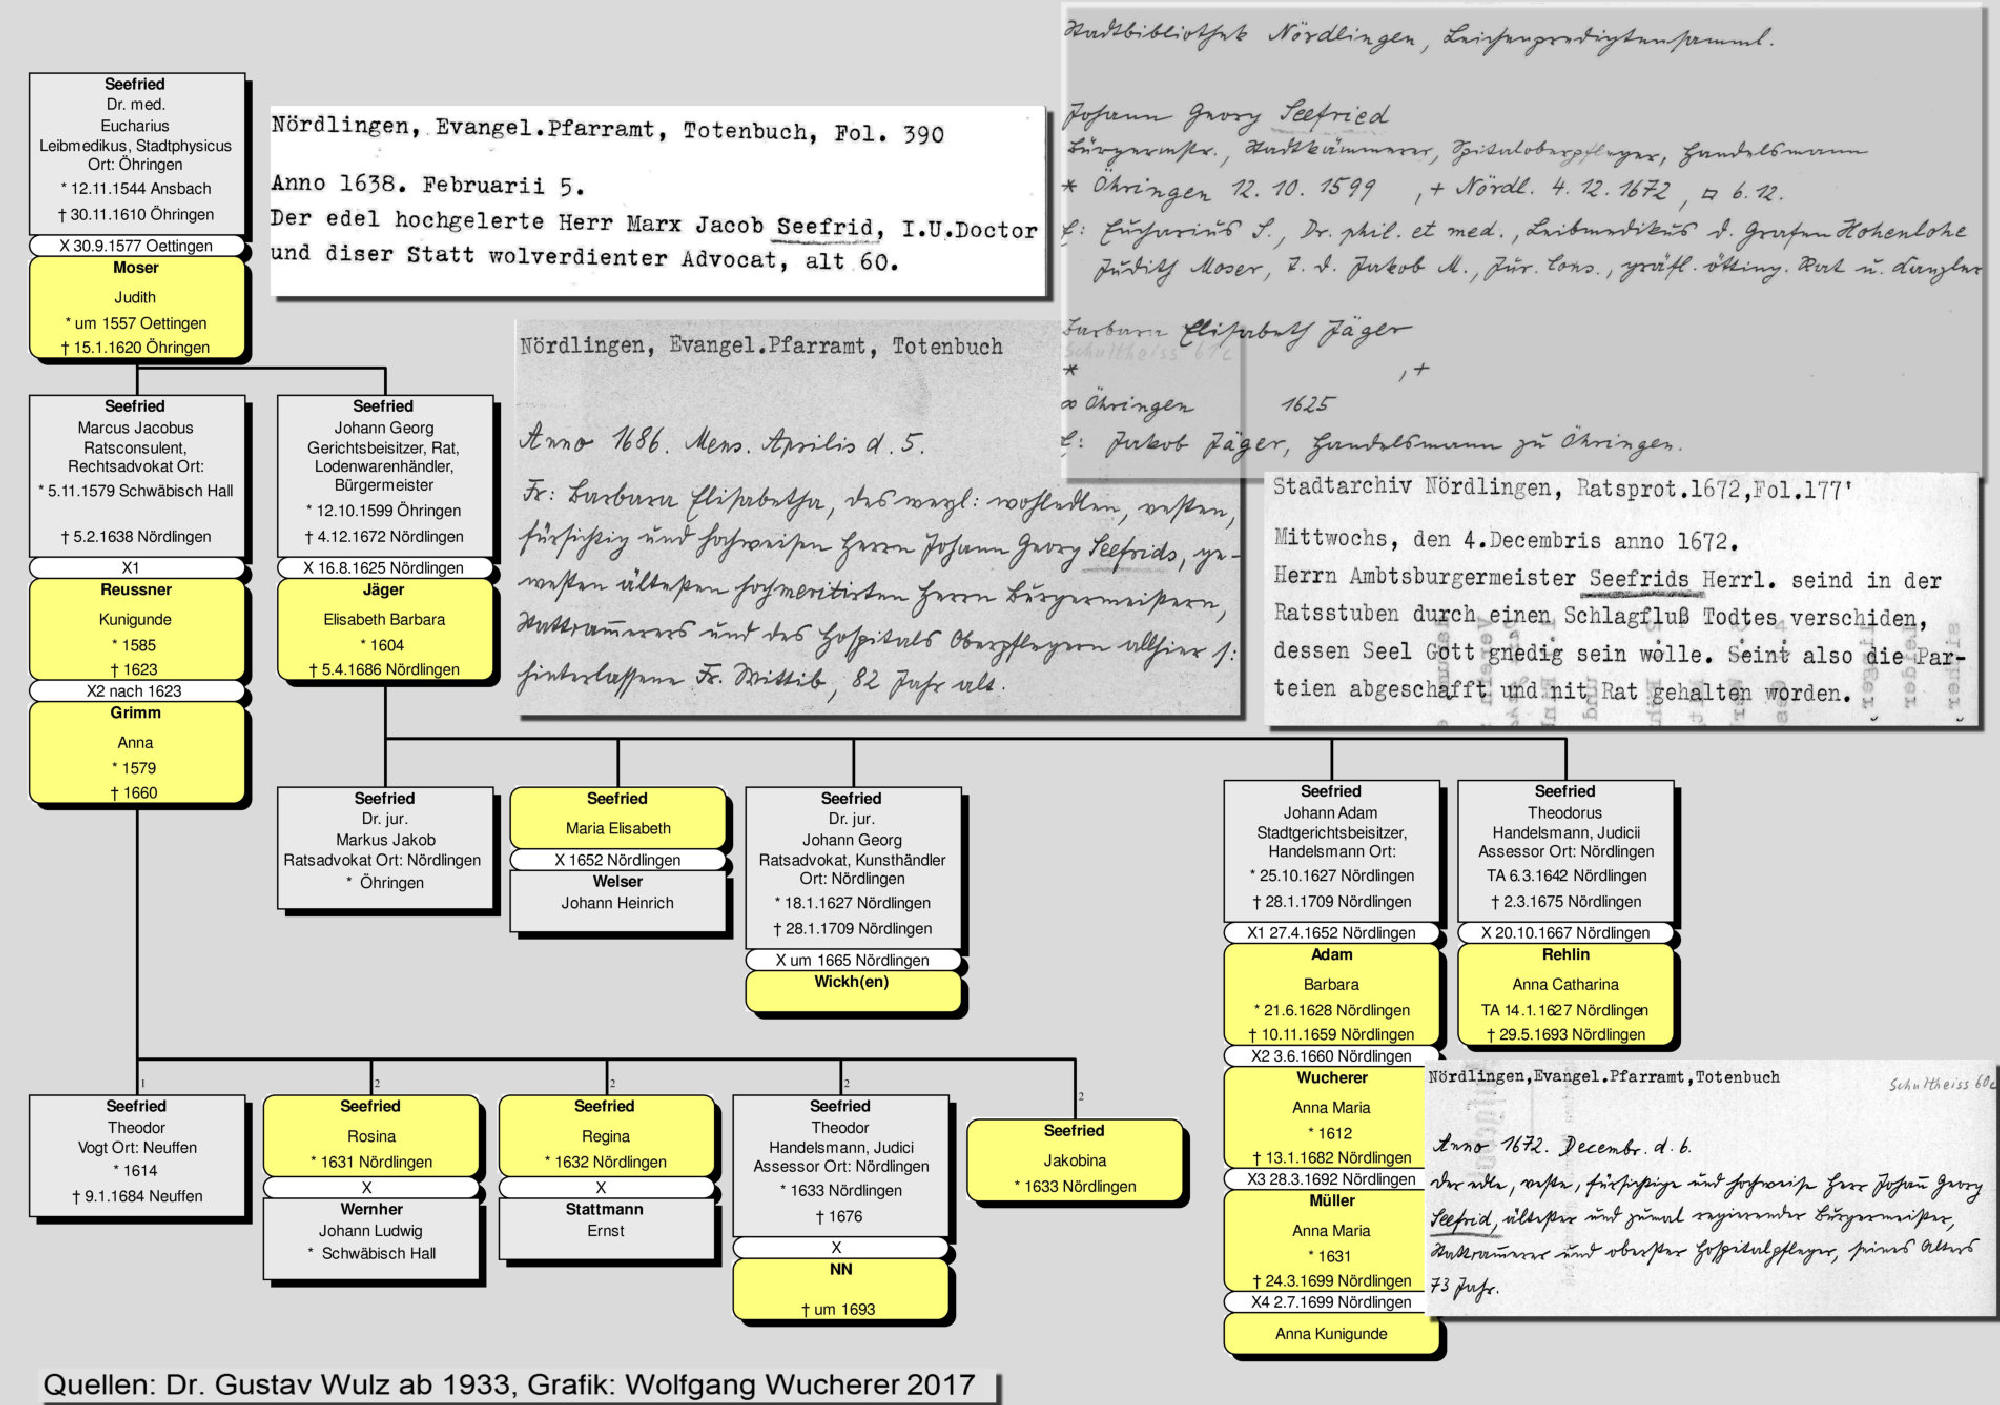 Seefried
Dr. med.
Eucharius
Leibmedikus, Stadtphysicus
Ort: Öhringen
* 12.11.1544 Ansbach
† 30.11.1610 Öhringen
X 30.9.1577 Oettingen
Moser
Judith
* um 1557 Oettingen
† 15.1.1620 Öhringen
Nördlingen, Evangel.Pfarramt, Totenbuch, Fol. 390
Anno 1638. Februarii 5.
Der edel hochgelerte Herr Marx Jacob Seefrid, I.U.Doctor
und diser Statt wolverdienter Advocat, alt 60.
Stadtbibliothek Nördlingen, Leichenpredigtensamml.
Johann Georg Seefried
Bürgermstr., Stadtkämmerer, Spitaloberpfleger, Handelsmann
* Öhringen 12. 10. 1599 , + Nördl. 4. 12. 1672, □ 6. 12.
E: Eucharius S., Dr. phil. et med., Leibmedikus d. Grafen Hohenlohe
Judith Moser, T. d. Jakob M., Jur. Cons., gräfl. ötting. Rat u. Kanzler
Barbara Elisabeth Jäger
Schultheiss 61c
* , +
∞ Öhringen 1625
E: Jakob Jäger, Handelsmann zu Öhringen.
Nördlingen, Evangel.Pfarramt, Totenbuch
Anno 1686. Mens. Aprilis d. 5.
Fr: Barbara Elisabetha, des weyl: wohledlen, vesten,
fürsichtig und hochweisen Herrn Johann Georg Seefrids, ge-
westen ältesten hochmeritirten Herrn Bürgermeistern,
Stattcam̄erers und des Hospitals Oberpflegern allhier s:
hinterlassene Fr. Wittib, 82 Jahr alt.
Stadtarchiv Nördlingen, Ratsprot.1672,Fol.177'
Mittwochs, den 4.Decembris anno 1672.
Herrn Ambtsburgermeister Seefrids Herrl. seind in der
Ratsstuben durch einen Schlagfluß Todtes verschiden,
dessen Seel Gott gnedig sein wolle. Seint also die Par-
teien abgeschafft und nit Rat gehalten worden.
Seefried
Marcus Jacobus
Ratsconsulent,
Rechtsadvokat Ort:
* 5.11.1579 Schwäbisch Hall
† 5.2.1638 Nördlingen
X1
Reussner
Kunigunde
* 1585
† 1623
X2 nach 1623
Grimm
Anna
* 1579
† 1660
Seefried
Johann Georg
Gerichtsbeisitzer, Rat,
Lodenwarenhändler,
Bürgermeister
* 12.10.1599 Öhringen
† 4.12.1672 Nördlingen
X 16.8.1625 Nördlingen
Jäger
Elisabeth Barbara
* 1604
† 5.4.1686 Nördlingen
Seefried
Dr. jur.
Markus Jakob
Ratsadvokat Ort: Nördlingen
* Öhringen
Seefried
Maria Elisabeth
X 1652 Nördlingen
Welser
Johann Heinrich
Seefried
Dr. jur.
Johann Georg
Ratsadvokat, Kunsthändler
Ort: Nördlingen
* 18.1.1627 Nördlingen
† 28.1.1709 Nördlingen
X um 1665 Nördlingen
Wickh(en)
Seefried
Johann Adam
Stadtgerichtsbeisitzer,
Handelsmann Ort:
* 25.10.1627 Nördlingen
† 28.1.1709 Nördlingen
X1 27.4.1652 Nördlingen
Adam
Barbara
* 21.6.1628 Nördlingen
† 10.11.1659 Nördlingen
X2 3.6.1660 Nördlingen
Wucherer
Anna Maria
* 1612
† 13.1.1682 Nördlingen
X3 28.3.1692 Nördlingen
Müller
Anna Maria
* 1631
† 24.3.1699 Nördlingen
X4 2.7.1699 Nördlingen
Anna Kunigunde
Seefried
Theodorus
Handelsmann, Judicii
Assessor Ort: Nördlingen
TA 6.3.1642 Nördlingen
† 2.3.1675 Nördlingen
X 20.10.1667 Nördlingen
Rehlin
Anna Catharina
TA 14.1.1627 Nördlingen
† 29.5.1693 Nördlingen
1
Seefried
Theodor
Vogt Ort: Neuffen
* 1614
† 9.1.1684 Neuffen
2
Seefried
Rosina
* 1631 Nördlingen
X
Wernher
Johann Ludwig
* Schwäbisch Hall
2
Seefried
Regina
* 1632 Nördlingen
X
Stattmann
Ernst
2
Seefried
Theodor
Handelsmann, Judici
Assessor Ort: Nördlingen
* 1633 Nördlingen
† 1676
X
NN
† um 1693
2
Seefried
Jakobina
* 1633 Nördlingen
Nördlingen,Evangel.Pfarramt,Totenbuch
Schultheiss 60c
Anno 1672. Decembr. d. 6.
Der edle, veste, fürsichtige und hochweise Herr Johan̄ Georg
Seefrid, ältester und zumal regierender Bürgermeister,
Stattcam̄erer und oberster Hospitalpfleger, seines Alters
73 Jahr.
Quellen: Dr. Gustav Wulz ab 1933, Grafik: Wolfgang Wucherer 2017